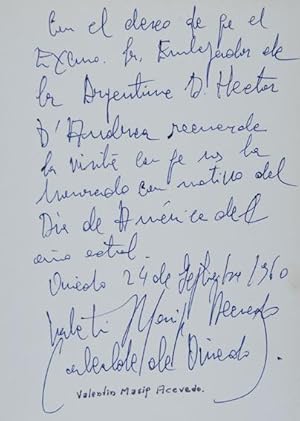 Con el deseo de qe el
Excmo. Sr. Embajador de
la Argentina D. Hector
D'Andrea recuerde
la visita con qe nos ha
honrado con motivo del
Día de América del
año actual.
Oviedo 24 de Septbre 1960
Valentin Masip Acevedo
(Alcalde de Oviedo).
Valentín Masip Acevedo.